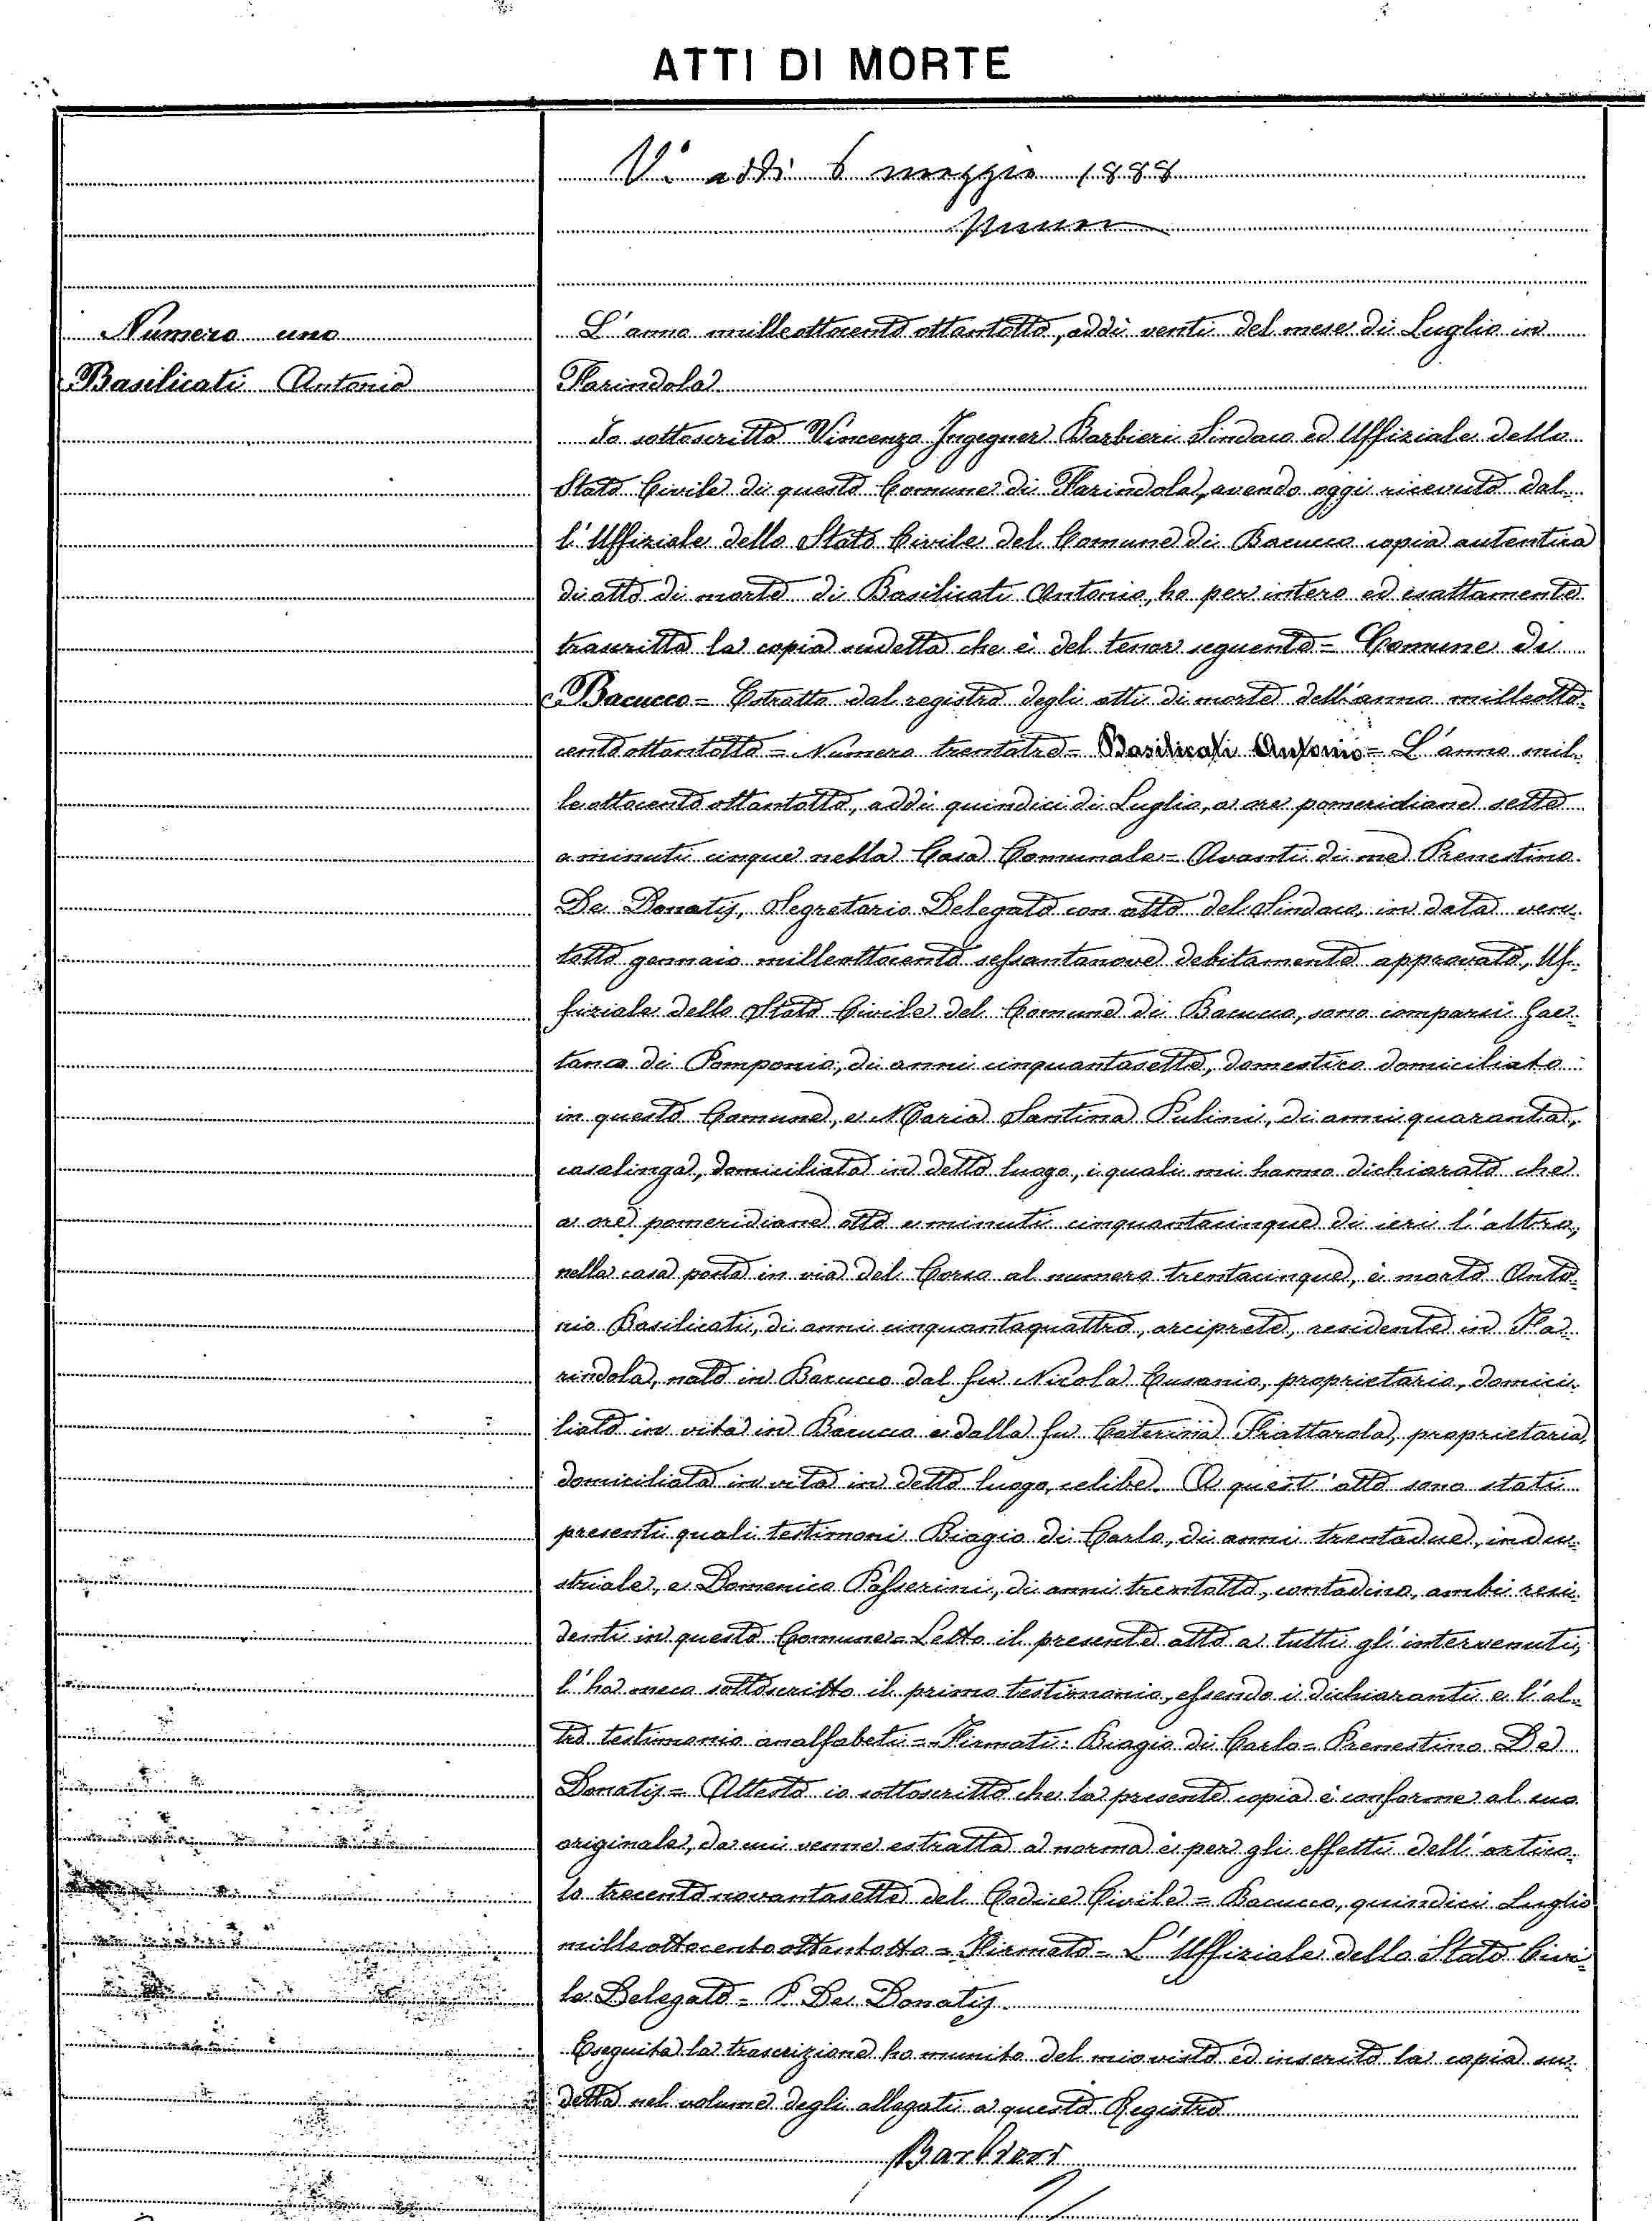 ATTI DI MORTE
V.° addì 6 maggio 1888
Numero uno
Basilicati Antonio
L'anno milleottocento ottantotto, addì venti del mese di Luglio in
Farindola
Io sottoscritto Vincenzo Ingegner Barbieri Sindaco ed Uffiziale dello
Stato Civile di questo Comune di Farindola, avendo oggi ricevuto dal
l'Uffiziale dello Stato Civile del Comune di Bacucco copia autentica
di atto di morte di Basilicati Antonio, ho per intero ed esattamente
trascritto la copia sudetta che è del tenor seguente = Comune di
Bacucco = Estratto dal registro degli atti di morte dell'anno milleotto-
cento ottantotto = Numero trentatre = Basilicati Antonio = L'anno mil-
leottocento ottantotto, addì quindici di Luglio, a ore pomeridiane sette
e minuti cinque nella Casa Comunale = Avanti di me Prenestino
De Donatis, Segretario Delegato con atto del Sindaco, in data ven-
totto gennaio milleottocento sessantanove debitamente approvato, Uf-
fiziale dello Stato Civile del Comune di Bacucco, sono comparsi Gae-
tano di Pomponio, di anni cinquantasette, domestico domiciliato
in questo Comune, e Maria Santina Pulini, di anni quaranta,
casalinga, domiciliata in detto luogo, i quali mi hanno dichiarato che
a ore pomeridiane otto e minuti cinquantacinque di ieri l'altro,
nella casa posta in via del Corso al numero trentacinque, è morto Anto-
nio Basilicati, di anni cinquantaquattro, arciprete, residente in Fa-
rindola, nato in Bacucco dal fu Nicola Eusanio, proprietario, domici-
liato in vita in Bacucco e dalla fu Caterina Frattarola, proprietaria,
domiciliata in vita in detto luogo, celibe. A quest'atto sono stati
presenti quali testimoni Biagio di Carlo, di anni trentadue, indu-
striale, e Domenico Passerini, di anni trentotto, contadino, ambi resi-
denti in questo Comune = Letto il presente atto a tutti gl'intervenuti,
l'ha meco sottoscritto il primo testimonio, essendo i dichiaranti e l'al-
tro testimonio analfabeti = Firmati: Biagio di Carlo = Prenestino De
Donatis = Attesto io sottoscritto che la presente copia è conforme al suo
originale, da cui venne estratta a norma e per gli effetti dell'artico-
lo trecentonovantasette del Codice Civile = Bacucco, quindici Luglio
milleottocentoottantotto = Firmato = L'Uffiziale dello Stato Civi-
le Delegato = P. De Donatis
Eseguita la trascrizione ho munito del mio visto ed inserito la copia su-
detta nel volume degli allegati a questo Registro
Barbieri